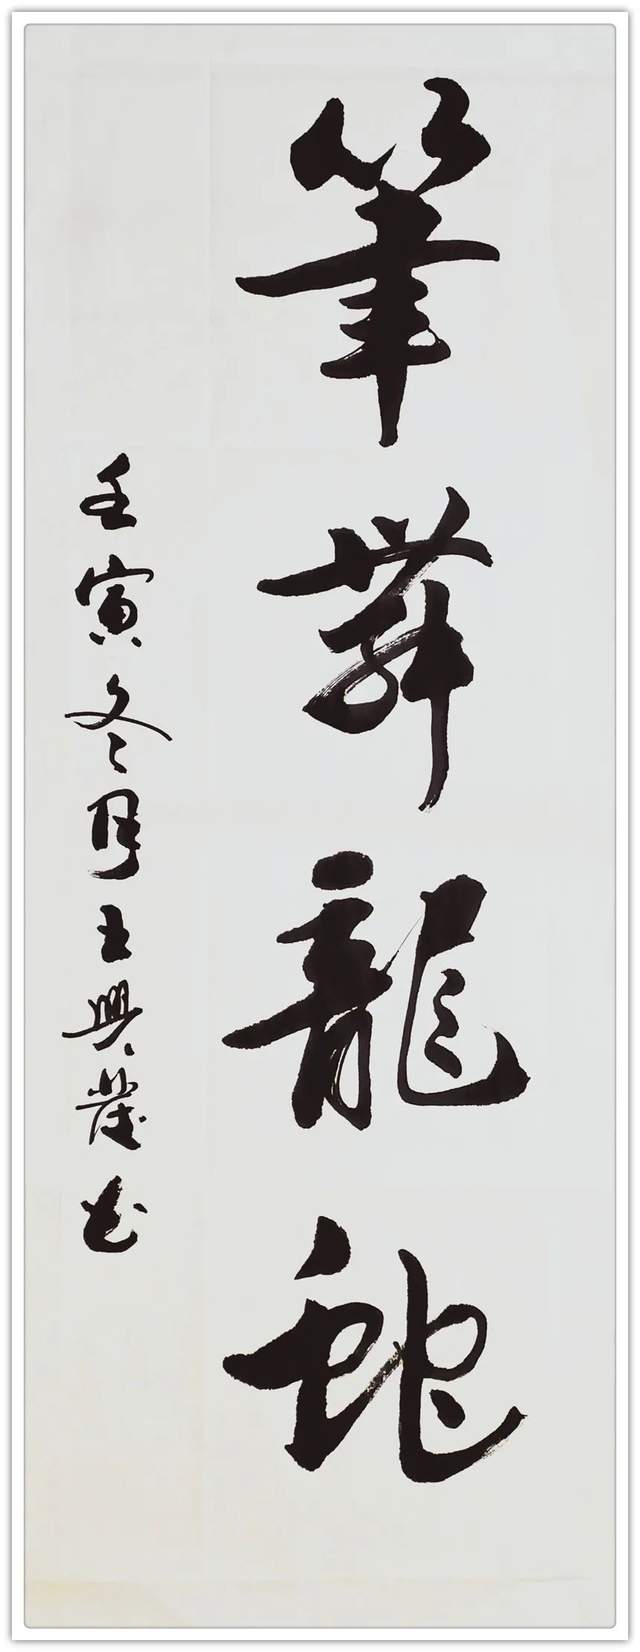 筆舞龍蛇
壬寅冬月王興發書